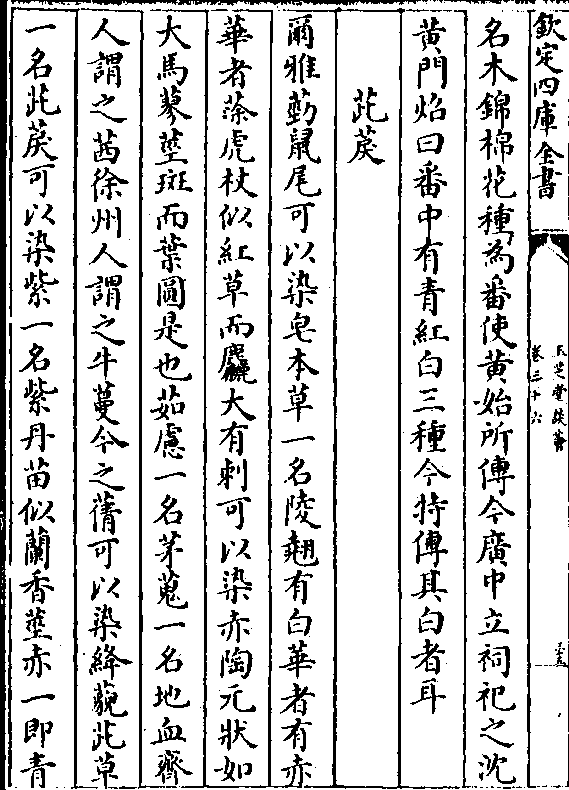 欽定四庫全書
玉芝堂談薈
卷三十六
名木錦棉花種為番使黄始所傳今廣中立祠祀之沈
黄門焰曰番中有青紅白三種今特傳其白者耳
茈䓞
爾雅葝鼠尾可以染皂本草一名陵翹有白華者有赤
華者蒤虎杖似紅草而麤大有刺可以染赤陶元狀如
大馬蓼莖斑而葉圓是也茹藘一名茅蒐一名地血齊
人謂之茜徐州人謂之牛蔓今之蒨可以染絳藐茈草
一名茈䓞可以染紫一名紫丹苗似蘭香莖赤一即青